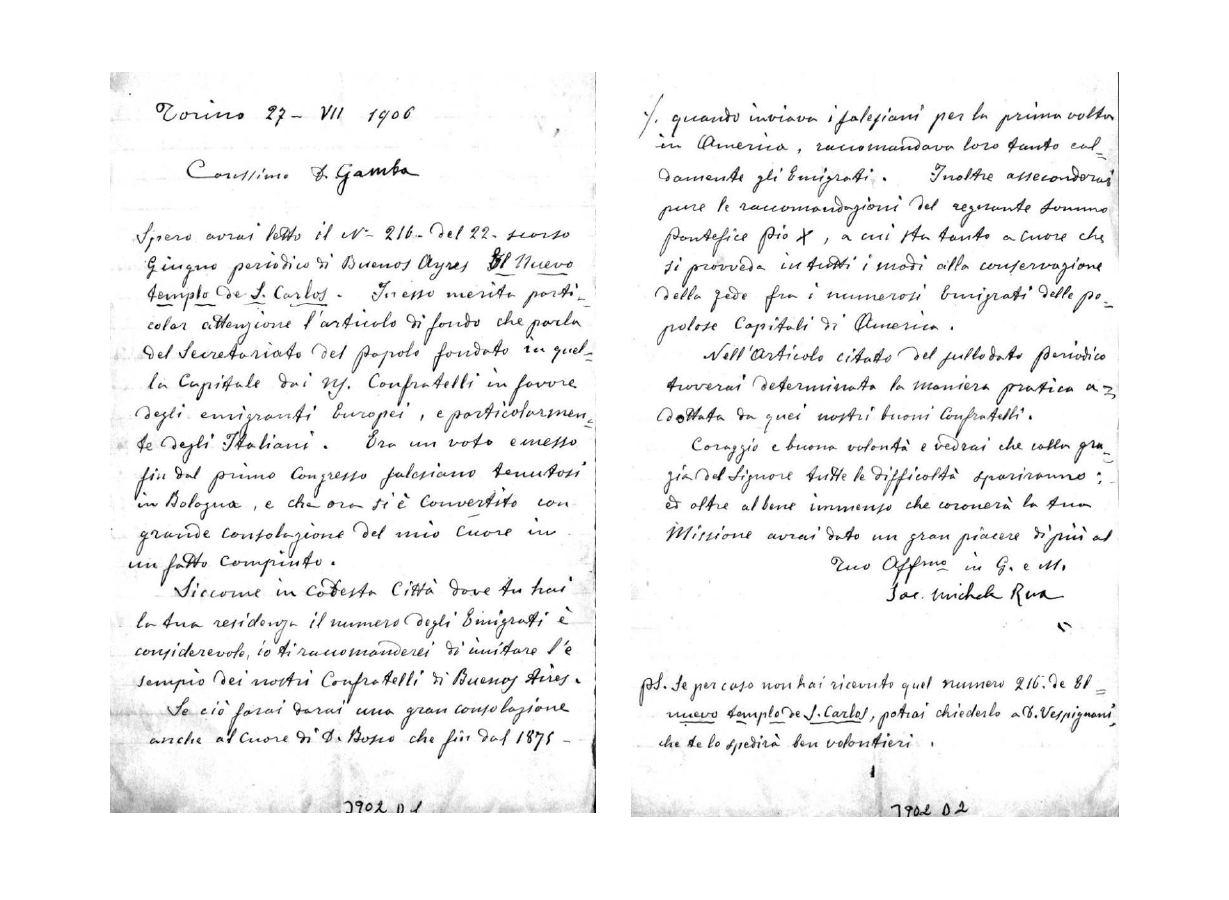 Torino 27 – VII 1906
Carissimo D. Gamba
Spero avrai letto il Nº 216. del 22. scorso
Giugno periodico di Buenos Ayres El Nuevo
templo de S. Carlos. In esso merita parti-
colar attenzione l'articolo di fondo che parla
del Secretariato del popolo fondato in quel=
la Capitale dai nj. Confratelli in favore
degli emigranti Europei, e particolarmen=
te degli Italiani. Era un voto emesso
fin dal primo Congresso salesiano tenutosi
in Bologna, e che ora si è convertito con
grande consolazione del mio cuore in
un fatto compiuto.
Siccome in codesta Città dove tu hai
la tua residenza il numero degli Emigrati è
considerevole, io ti raccomanderei di imitare l'e
sempio dei nostri Confratelli di Buenos Aires.
Se ciò farai darai una gran consolazione
anche al Cuore di D. Bosco che fin dal 1875 –
7902 D 1
/. quando inviava i salesiani per la prima volta
in America, raccomandava loro tanto cal=
damente gli Emigrati. Inoltre asseconderai
pure le raccomandazioni del regnante Sommo
Pontefice Pio X, a cui sta tanto a cuore che
si provveda in tutti i modi alla conservazione
della fede fra i numerosi Emigrati delle po=
polose Capitali di America.
Nell'Articolo citato del sullodato periodico
troverai determinata la maniera pratica a=
dottata da quei nostri buoni Confratelli.
Coraggio e buona volontà e vedrai che colla gra=
zia del Signore tutte le difficoltà spariranno;
ed oltre al bene immenso che coronerà la tua
Missione avrai dato un gran piacere di più al
Tuo Affmo in G. e M.
Sac. Michele Rua
PS. Se per caso non hai ricevuto quel numero 216. de El =
nuevo templo de S. Carlos, potrai chiederlo a D. Vespignani,
che te lo spedirà ben volontieri.
7902 D 2